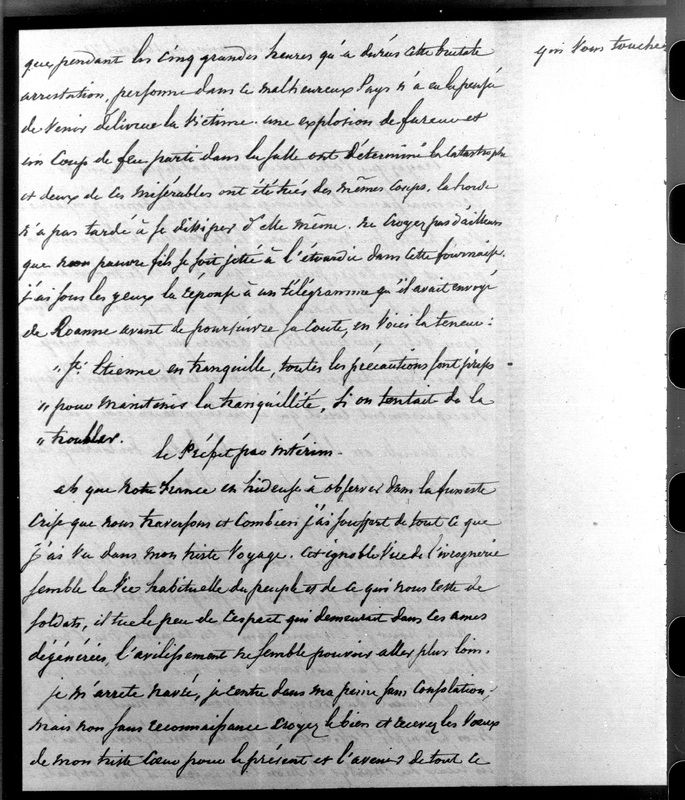 que pendant les cinq grandes heures qu'a durées cette brutale
arrestation, personne dans ce malheureux Pays n'a eu la pensée
de venir délivrer la victime. une explosion de fureur et
un coup de feu parti dans la salle ont déterminé la catastrophe
et deux de ces misérables ont été tués des mêmes coups. la horde
n'a pas tardé à se dissiper d'elle même. ne croyez pas d'ailleurs
que mon pauvre fils se soit jeté à l'étourdie dans cette fournaise.
j'ai sous les yeux la réponse à un télégramme qu'il avait envoyé
de Roanne avant de poursuivre sa route, en voici la teneur:
" St Etienne est tranquille, toutes les précautions sont prises
" pour maintenir la tranquillité, si on tentait de la
" troubler.
le Préfet par intérim -
ah que notre France est hideuse à observer dans la funeste
crise que nous traversons et combien j'ai souffert de tout ce que
j'ai vu dans mon triste voyage. cet ignoble vice de l'ivrognerie
semble la vie habituelle du peuple et de ce qui nous reste de
soldats, il tue le peu de respect qui demeurait dans ces ames
dégénérées, l'avilissement ne semble pouvoir aller plus loin.
je m'arrete navré, je rentre dans ma peine sans consolation,
mais non sans reconnaissance croyez le bien et recevez les voeux
de mon triste coeur pour le présent et l'avenir de tout ce
qui vous touche